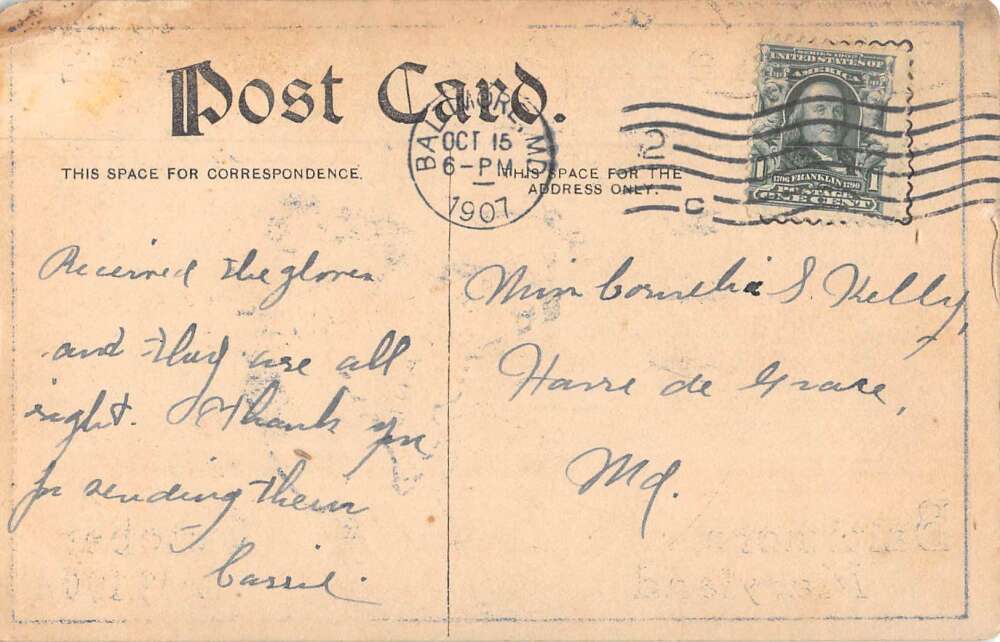 Post Card.
THIS SPACE FOR CORRESPONDENCE.
THIS SPACE FOR THE
ADDRESS ONLY.
BALTIMORE, MD.
OCT 15
6-PM
1907
2
C
SERIES 1902
UNITED STATES OF
AMERICA
1706 FRANKLIN 1790
1 1
POSTAGE
ONE CENT
Received the gloves
and they are all
right. I thank you
for sending them
Carrie.
Miss Cornelia S Kelly,
Havre de Grace,
Md.
Baltimore
Maryland